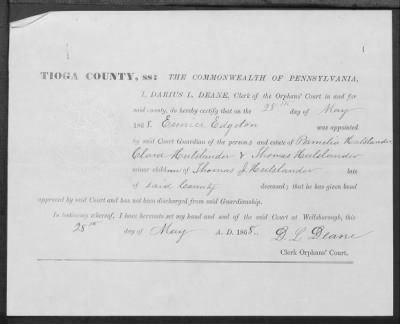 TIOGA COUNTY, SS: THE COMMONWEALTH OF PENNSYLVANIA,
I, DARIUS L. DEANE, Clerk of the Orphans' Court in and for
said county, do hereby certify that on the 28th day of May
1868. Eunice Edgeton was appointed
by said Court Guardian of the persons and estate of Pamelia Hutslander
Clara Hutslander & Thomas Hutslander
minor children of Thomas J. Hutslander late
of said County deceased; that he has given bond
approved by said Court and has not been discharged from said Guardianship.
In testimony whereof, I have hereunto set my hand and seal of the said Court at Wellsborough, this
28th day of May A. D. 1868.. D. L. Deane
Clerk Orphans' Court.